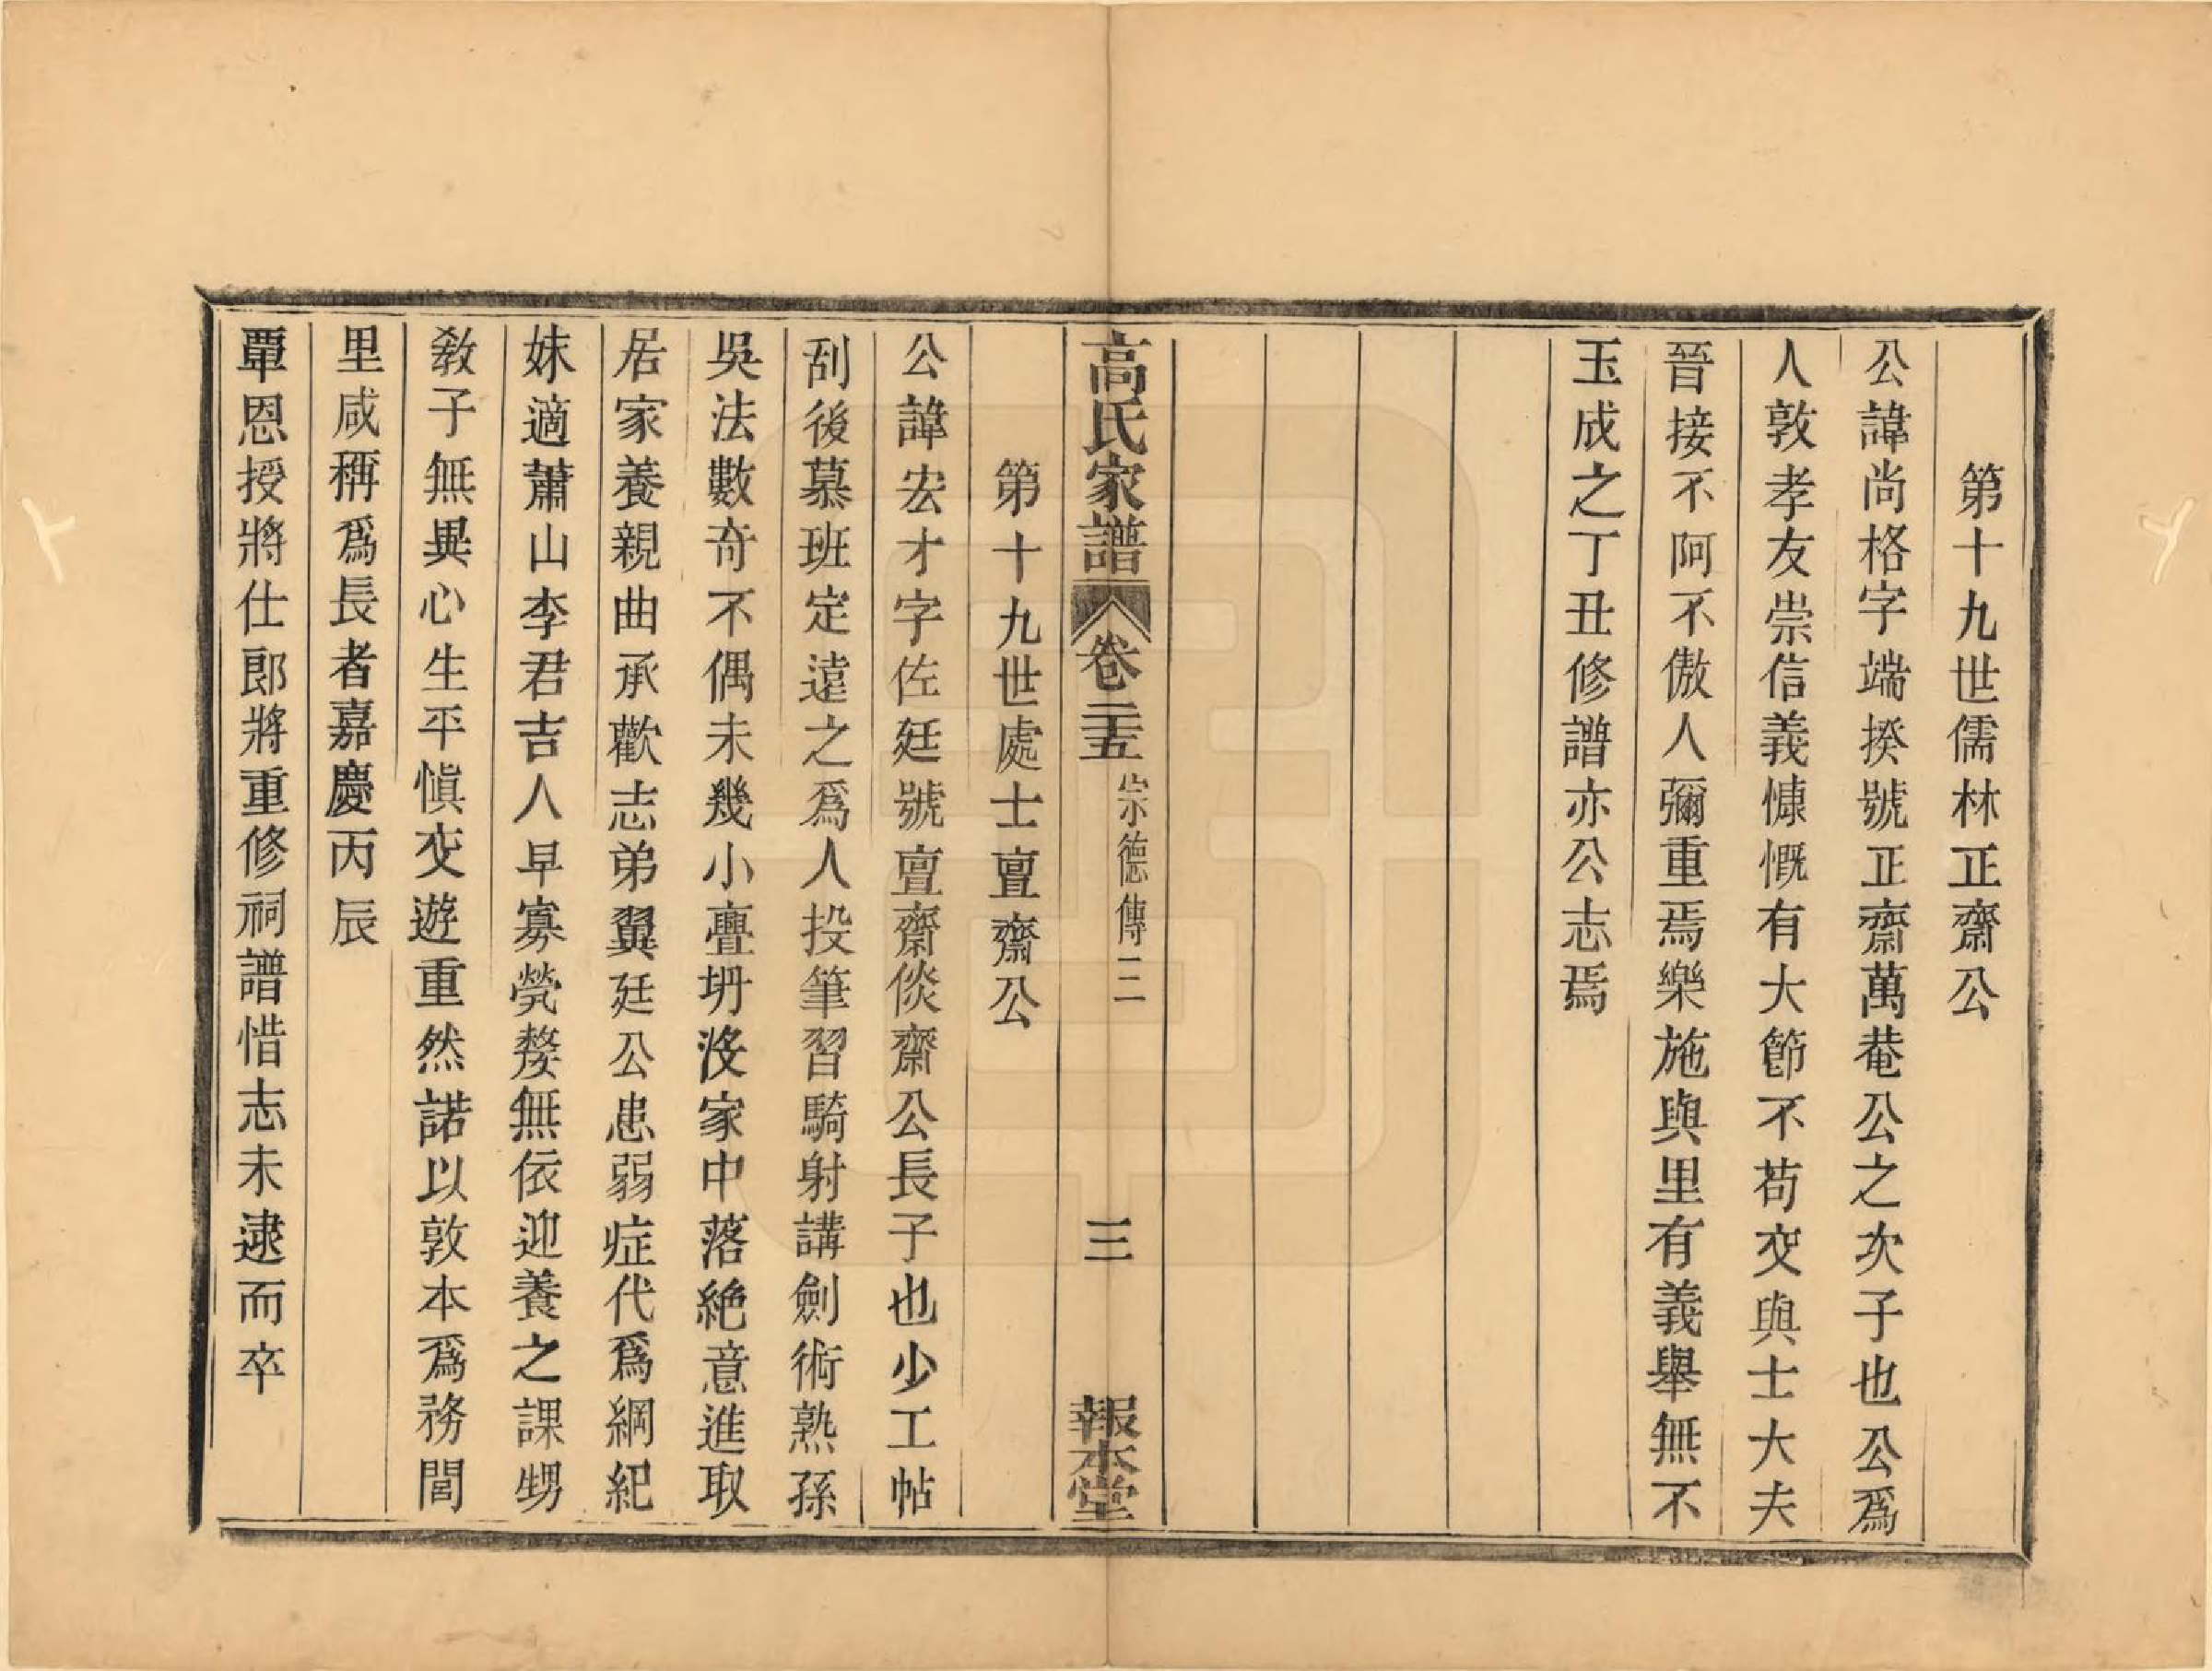 第十九世儒林正齋公
公諱尚格字端揆號正齋萬菴公之次子也公爲
人敦孝友崇信義慷慨有大節不苟交與士大夫
晉接不阿不傲人彌重焉樂施與里有義舉無不
玉成之丁丑修譜亦公志焉
高氏家譜
卷二十五
宗德傳二
三
報本堂
第十九世處士亶齋公
公諱宏才字佐廷號亶齋倓齋公長子也少工帖
刮後慕班定遠之爲人投筆習騎射講劍術熟孫
吳法數奇不偶未幾小亹坍沒家中落絶意進取
居家養親曲承歡志弟翼廷公患弱症代爲綱紀
妹適蕭山李君吉人早寡煢嫠無依迎養之課甥
敎子無異心生平愼交遊重然諾以敦本爲務閭
里咸稱爲長者嘉慶丙辰
覃恩授將仕郎將重修祠譜惜志未逮而卒